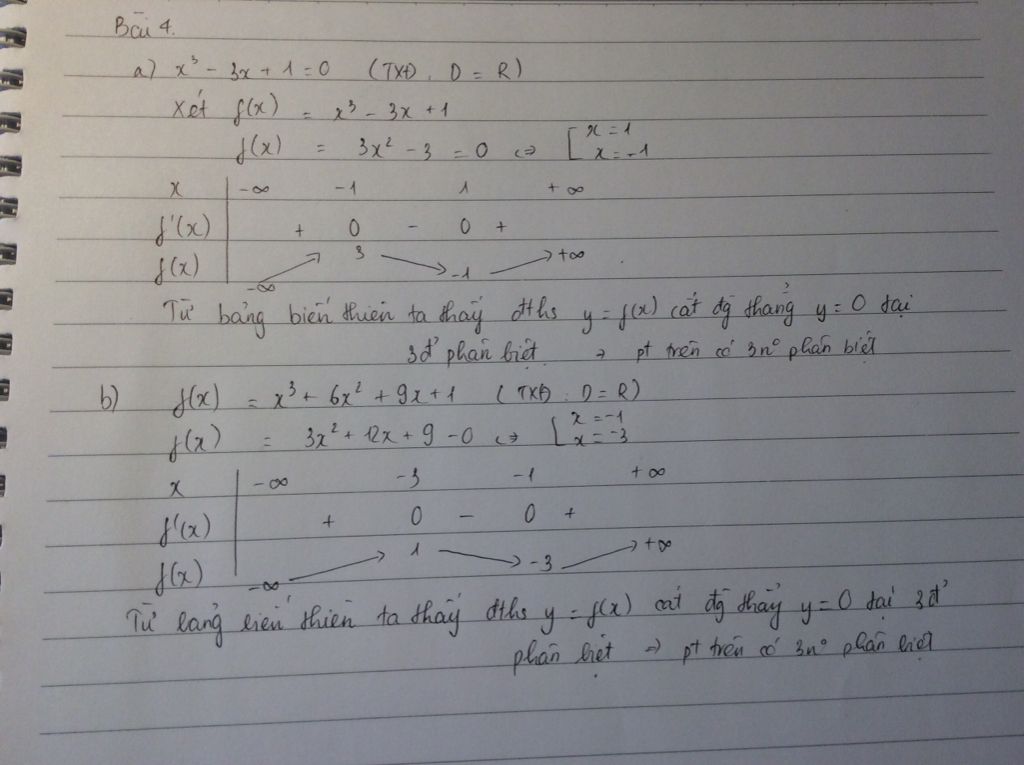 Bài 4.
a) x³ - 3x + 1 = 0 (TXĐ, D = R)
Xét f(x) = x³ - 3x + 1
f(x) = 3x² - 3 = 0 ⇔ [ x = 1
x = -1
x -∞ -1 1 +∞
f'(x) + 0 - 0 +
f(x) -∞ ↗ 3 ↘ -1 ↗ +∞
Từ bảng biến thiên ta thấy đths y = f(x) cắt đg thẳng y = 0 tại
3đ' phân biệt ⇒ pt trên có 3n⁰ phân biệt
b) f(x) = x³ + 6x² + 9x + 1 (TXĐ: D = R)
f(x) = 3x² + 12x + 9 - 0 ⇔ [ x = -1
x = -3
x -∞ -3 -1 +∞
f'(x) + 0 - 0 +
f(x) -∞ ↗ 1 ↘ -3 ↗ +∞
Từ bảng biến thiên ta thấy đths y = f(x) cắt đg thẳng y = 0 tại 3đ'
phân biệt ⇒ pt trên có 3n⁰ phân biệt